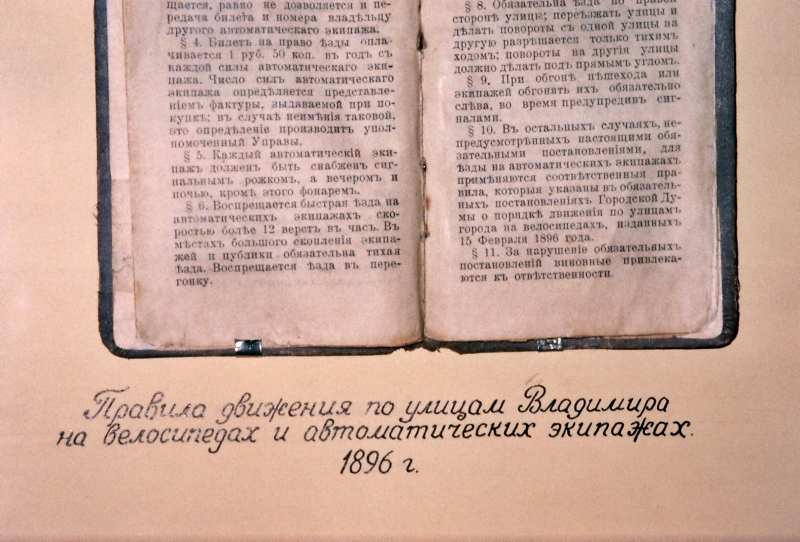 щается, равно не дозволяется и пе-
редача билета и номера владѣльцу
другого автоматическаго экипажа.
§ 4. Билетъ на право ѣзды опла-
чивается 1 руб. 50 коп. въ годъ съ
каждой силы автоматическаго эки-
пажа. Число силъ автоматическаго
экипажа опредѣляется представле-
ніемъ фактуры, выдаваемой при по-
купкѣ; въ случаѣ неимѣнія таковой,
это опредѣленіе производитъ упол-
номоченный Управы.
§ 5. Каждый автоматическій эки-
пажъ долженъ быть снабженъ сиг-
нальнымъ рожкомъ, а вечеромъ и
ночью, кромѣ этого фонаремъ.
§ 6. Воспрещается быстрая ѣзда на
автоматическихъ экипажахъ ско-
ростью болѣе 12 верстъ въ часъ. Въ
мѣстахъ большого скопленія экипа-
жей и публики обязательна тихая
ѣзда. Воспрещается ѣзда въ пере-
гонку.
§ 8. Обязательна ѣзда по правой
сторонѣ улицы; переѣзжать улицы и
дѣлать повороты съ одной улицы на
другую разрѣшается только тихимъ
ходомъ; повороты на другія улицы
должно дѣлать подъ прямымъ угломъ.
§ 9. При обгонѣ пѣшехода или
экипажей обгонять ихъ обязательно
слѣва, во время предупредивъ сиг-
налами.
§ 10. Въ остальныхъ случаяхъ, не-
предусмотрѣнныхъ настоящими обя-
зательными постановленіями, для
ѣзды на автоматическихъ экипажахъ
примѣняются соотвѣтственныя пра-
вила, которыя указаны въ обязатель-
ныхъ постановленіяхъ Городской Ду-
мы о порядкѣ движенія по улицамъ
города на велосипедахъ, изданныхъ
15 Февраля 1896 года.
§ 11. За нарушеніе обязательныхъ
постановленій виновные привлека-
ются къ отвѣтственности.
Правила движения по улицам Владимира
на велосипедах и автоматических экипажах.
1896 г.